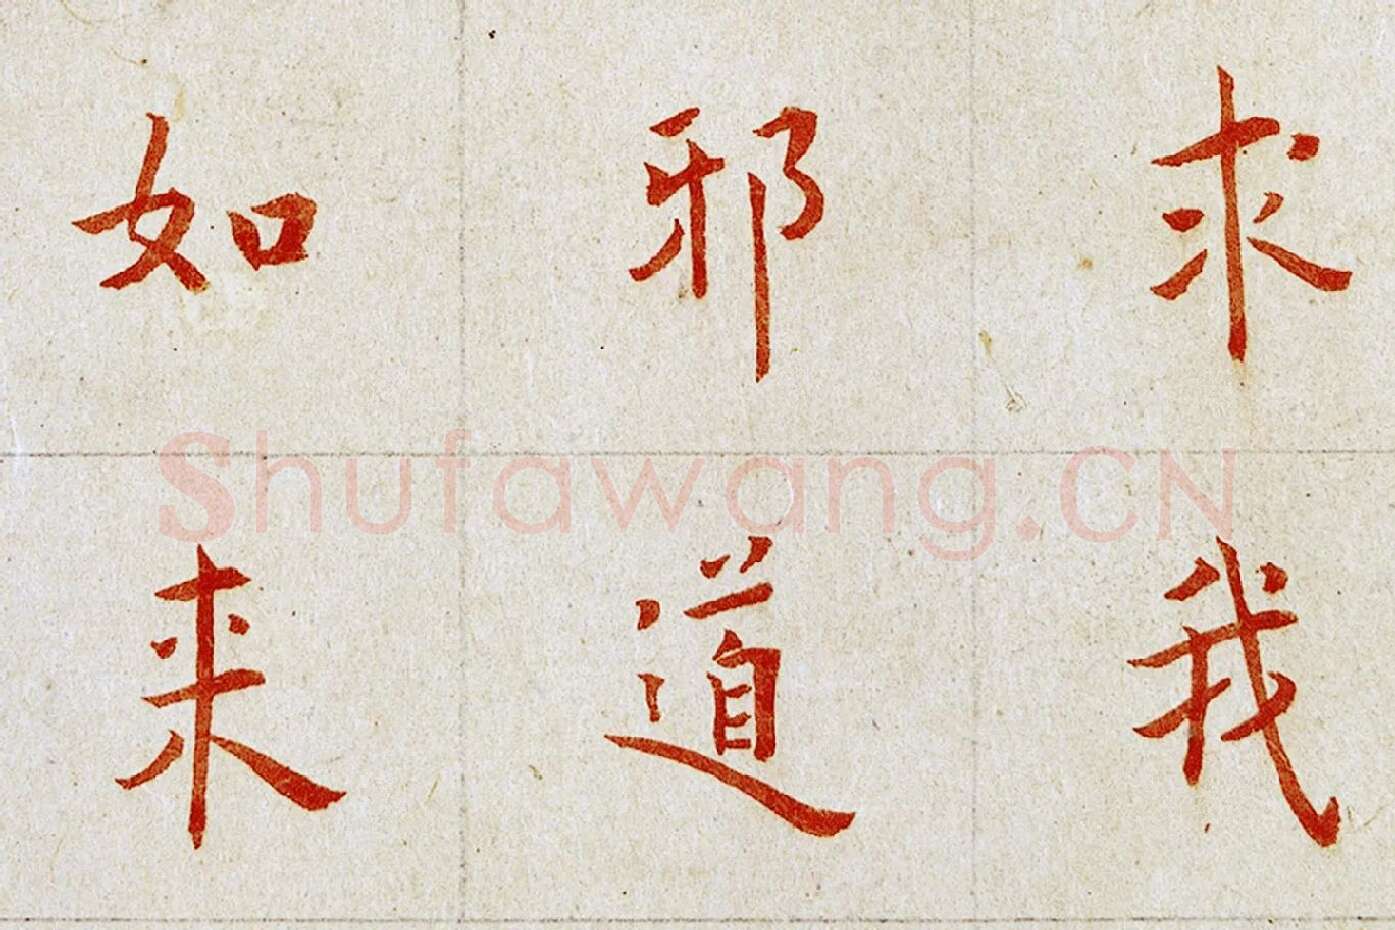 求我
邪道
如来
Shufawang.CN